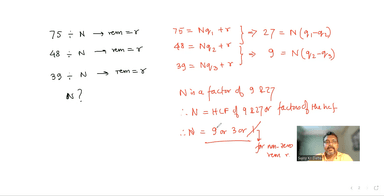 75 ÷ N → rem = r
48 ÷ N → rem = r
39 ÷ N → rem = r
N?
75 = Nq₁ + r
48 = Nq₂ + r
39 = Nq₃ + r
⇒ 27 = N(q₁-q₂)
⇒ 9 = N(q₂-q₃)
N is a factor of 9 & 27
∴ N = HCF of 9 & 27 or factors of the hcf
∴ N = 9 or 3 or 1
for non-zero
rem r